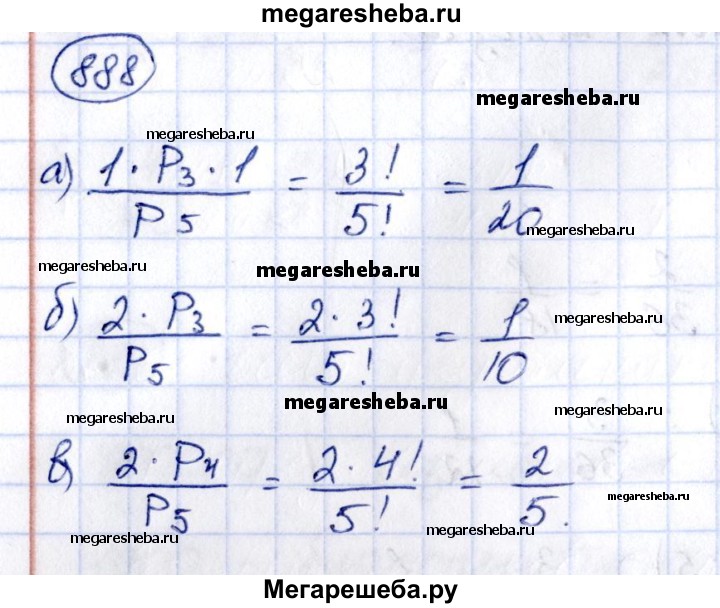 megaresheba.ru
888
megaresheba.ru
megaresheba.ru
а) 1 · P₃ · 1 / P₅ = 3! / 5! = 1 / 20
megaresheba.ru
megaresheba.ru
megaresheba.ru
б) 2 · P₃ / P₅ = 2 · 3! / 5! = 1 / 10
megaresheba.ru
megaresheba.ru
megaresheba.ru
megaresheba.ru
в) 2 · P₄ / P₅ = 2 · 4! / 5! = 2 / 5.
megaresheba.ru
megaresheba.ru
megaresheba.ru
Мегарешеба.ру